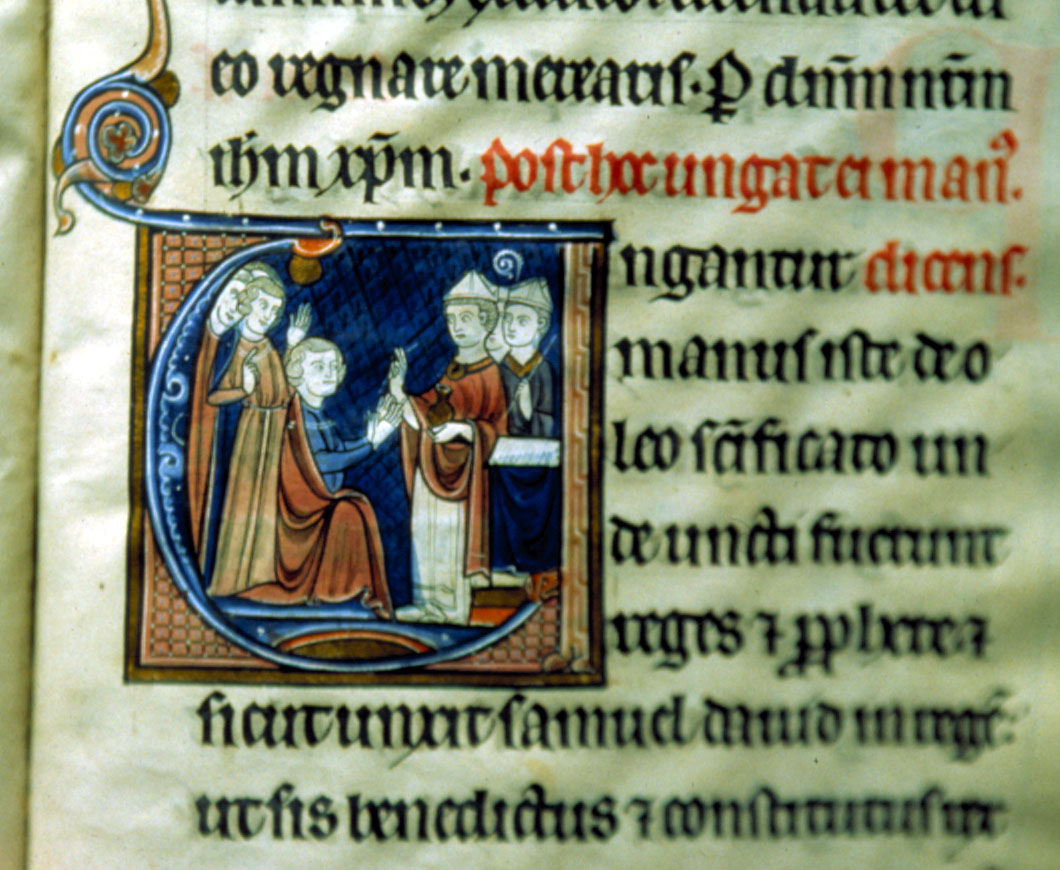 eo regnare merearis. P dn̄m nr̄m
ihm xp̄m. post hoc ungat ei man᷒.
Ungantur dicens.
manus iste de o
leo sc̄ificato un
de uncti fuerunt
reges ⁊ ꝓphete ⁊
sicut unxit samuel dauid in regē:
ut sis benedictus ⁊ constitutus rex